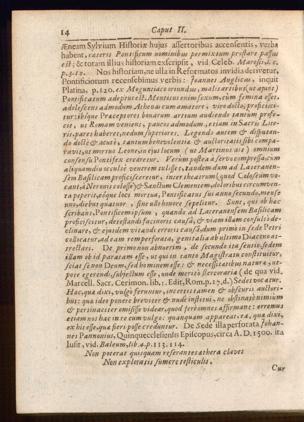 14 Caput II.
Æneam Sylvium Historiæ hujus assertoribus accensentis, verba
habent, cæteris Pontificum nominibus permixtum prostare passus
est; & totam illius historiam exscripsit, vid. Celeb. Maresii d. t.
p. 3-10. Nos historiam, ne ulla in Reformatos invidia derivetur,
Pontificiorum recensebimus verbis: Joannes Anglicus, inquit
Platina, p. 120. ex Moguntiaco oriundus, malis artibus (ut ajunt)
Pontificatum adeptus est. Mentitus enim sexum, cum femina esset,
adolescens admodum Athenas cum amatore, viro docto, proficisci-
tur: ibique Præceptores bonarum artium audiendo tantum profe-
cit, ut Romam veniens, paucos admodum, etiam in Sacris Lite-
ris, pares haberet, nedum superiores. Legendo autem & disputan-
do docte & acute, tantum benevolentiæ & auctoritatis sibi compa-
ravit, ut mortuo Leone in ejus locum (ut Martinus ait) omnium
consensu Pontifex crearetur. Verum postea à servo compressa cum
aliquamdiu occulte ventrem tulisset, tandem dum ad Lateranen-
sem Basilicam proficisceretur, inter theatrum (quod Colosseum vo-
cant, à Neronis colosso) & Sanctum Clementem, doloribus circumven-
ta peperit, eoque loci mortua, Pontificatus sui anno secundo, mense
uno, diebus quatuor, sine ullo honore sepelitur. Sunt, qui ob hæc
scribant, Pontificem ipsum, quando ad Lateranensem Basilicam
proficiscitur, detestandi facinoris causâ, & viam illam consulto de-
clinare, & ejusdem vitandi erroris causâ, dum primo in sede Petri
collocatur, ad eam rem perforatâ, genitalia ab ultimo Diacono at-
trectari. De primo non abnuerim, de secundo ita sentio, sedem
illam ad id paratam esse, ut qui in tanto Magistratu constituitur,
sciat se non Deum, sed hominem esse: & necessitatibus naturæ, ut-
pote egerendi, subjectum esse, unde merito stercoraria (de qua vid.
Marcell. Sacr. Cerimon. lib. 1. Edit. Rom. p. 17. d.) Sedes vocatur.
Hæc, quæ dixi, vulgo feruntur, incertis tamen & obscuris auctori-
bus: quæ ideo ponere breviter & nude institui, ne obstinate nimium
& pertinaciter omisisse videar, quod fere omnes affirmant: erremus
etiam nos hac in re cum vulgo: quanquam appareat, ea, quæ dixi,
ex his esse, quæ fieri posse creduntur. De Sede illa perforata Johan-
nes Pannonius, Quinqueecclesiensis Episcopus, circa A. D. 1500. ita
lusit, vid. Baleum, lib. 4. p. 113. 114.
Non poterat quisquam referantes æthera claves
Non exploratis sumere testiculis.
Cur